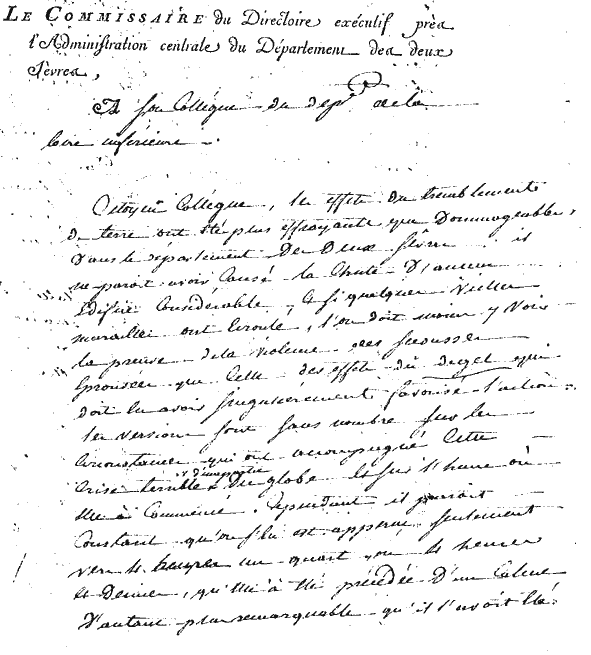 LE COMMISSAIRE du Directoire exécutif près
l'Administration centrale du Département des deux
Sèvres,
A son Collègue du dép.t de la
loire inférieure.
Citoyen Collègue, les effets du tremblement
de terre ont été plus effrayants que Dommageables,
Dans le département Des Deux Sèvres il
ne parait avoir Causé la Chute D'aucun
Edifice Considérable, & si quelques Vieilles
murailles ont Ecroulé, l'on doit moins y Voir
la preuve de la violence des secousses
Eprouvées que Celle des effets du degel qui
doit en avoir singulièrement favorisé l'action.
les versions sont sans nombre sur les
Circonstances qui ont accompagné Cette
Crise terrible d'une partie du globe & sur l'heure où
Elle a Commencé. Cependant il parait
Constant qu'on s'en est apperçu seulement
vers 4 heures un quart 4 heures
& Demie, qu'elle a été précédée D'un Calme
D'autant plus remarquable qu'il l'avoit été